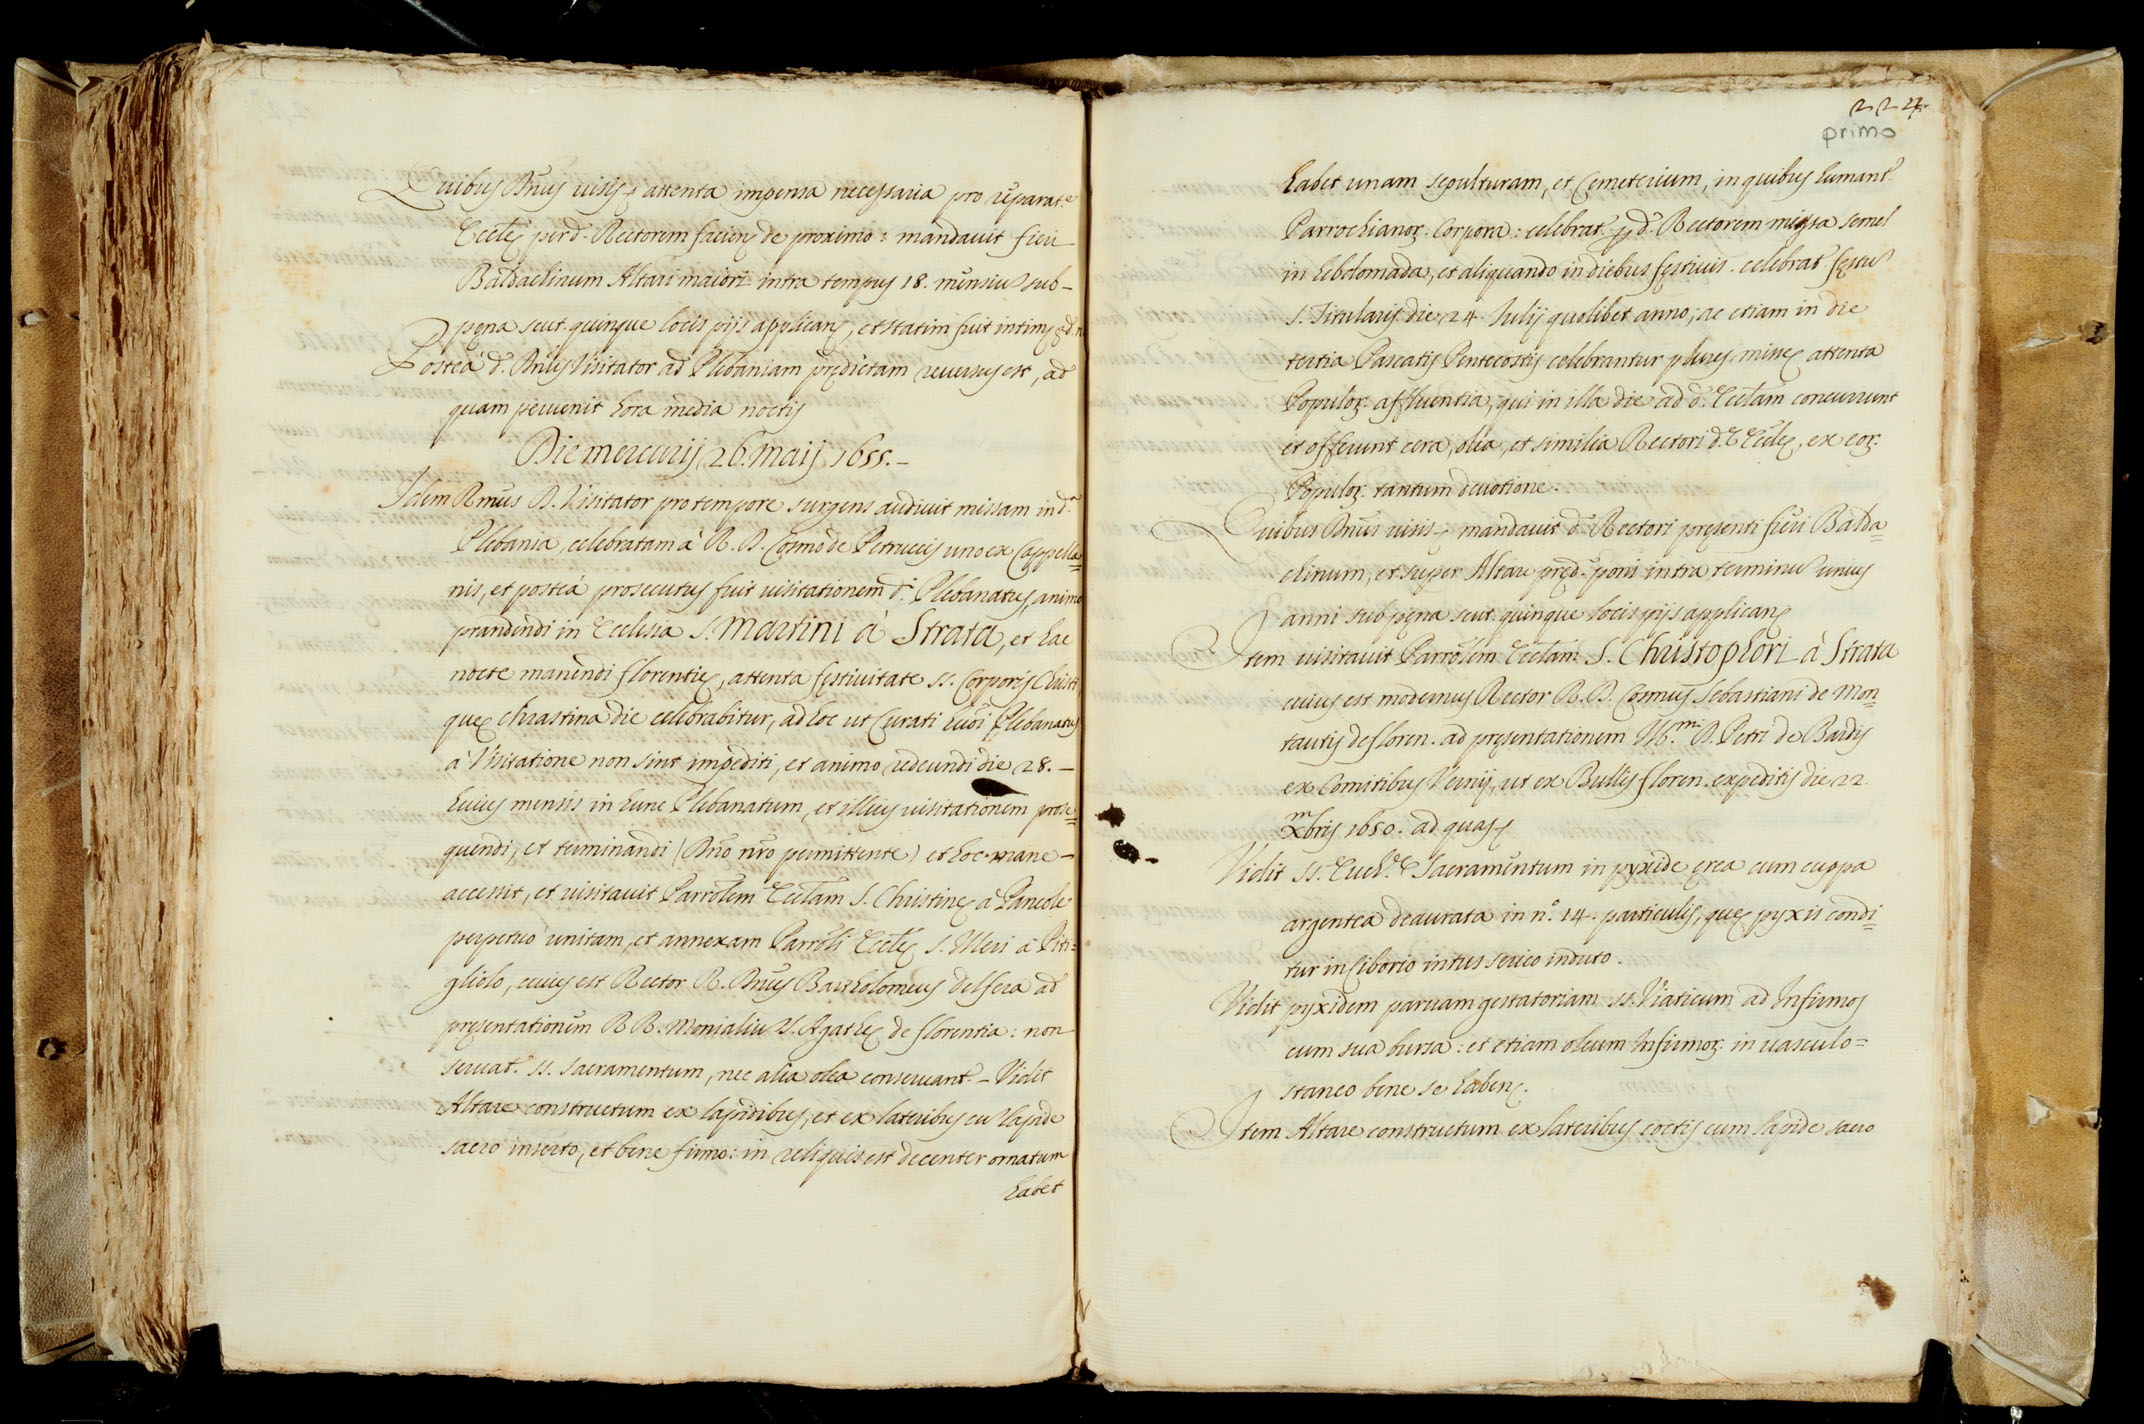 Quibus Dn̄us visis, attenta impensa necessaria pro reparat.e
Eccl̄ę per d. Rectorem facien̄ de proximo: mandavit fieri
Baldachinum Altari maiori intra tempus 18. mensiū sub-
pęna scut. quinque locis pijs applican̄, et statim fuit intim.
Postea d. Dn̄us Visitator ad Plebaniam prędictam reversus est, ad
quam pervenit hora media noctis
Die mercurij 26. maij 1655.-
Idem Rm̄us D. Visitator pro tempore surgens audivit missam in d.a
Plebania, celebratam à R. D. Cosmo de Petruccis uno ex Cappella=
nis, et postea prosecutus fuit visitationem d.i Plebanatus, animo
prandendi in Ecclesia S. Martini à Strata, et hac
nocte manendi florentię, attenta festivitate SS. Corporis Christi
quę chrastina die celebrabitur, ad hoc ut Curati huōi Plebanatus
à Visitatione non sint impediti, et animo redeundi die 28.-
huius mensis in hunc Plebanatum, et illius visitationem prose=
quendi, et terminandi (Dn̄o nr̄o permittente) et hoc mane-
accessit, et visitavit Parrōlem Eccl̄am S. Christinę à Pancole
perpetuo unitam, et annexam Parrōli Eccl̄ę S. Meri à Piti=
gliolo, cuius est Rector R. Dn̄us Bartholomeus Delsera ad
pręsentationem RR. Monialiū S. Agathę de florentia: non
servat. SS. Sacramentum, nec alia olea conservant.- Vidit
Altare constructum ex lapidibus, et ex lateribus cū lapide
sacro inserto, et bene firmo: in reliquis est decenter ornatum
habet
224
primo
habet unam sepulturam, et Cemeterium, in quibus humant.
Parrochianor. Corpora: celebrat. p d. Rectorem missa semel
in hebdomada, et aliquando in diebus festivis. celebrat. festū
S. Titularis die 24. Iulij quolibet anno; ac etiam in die
tertia Pascatis Pentecostis celebrantur plures missę attenta
Populor. affluentia, qui in illa die ad d. Eccl̄am concurrunt
et offerunt cera, olea, et similia Rectori d. Eccl̄ę, ex eor.
Populor. tantum devotione.
Quibus Dn̄us visis, mandavit d. Rectori pręsenti fieri Balda=
chinum, et super Altare pręd. poni intra terminū unius
anni sub pęna scut. quinque locis pijs applican̄
Item visitavit Parrōlem Eccl̄am S. Christophori à Strata
cuius est modernus Rector R. D. Cosmus Sebastiani de Mon=
tautis de floren. ad pręsentationem Ill.mi D. Petri de Bardis
ex Comitibus Vernij, ut ex Bullis floren. expeditis die 22
Xm̄bris 1650. ad quas,
Vidit SS. Euch.ę Sacramentum in pyxide ęrea cum cuppa
argentea deaurata in n.o 14. particulis, quę pyxis condi=
tur in Ciborio intus serico induto.
Vidit pyxidem parvam gestatoriam SS. Viaticum ad Infirmos
cum sua bursa: et etiam oleum Infirmor. in vasculo=
staneo bene se haben̄.
Item Altare constructum ex lateribus coctis cum lapide sacro